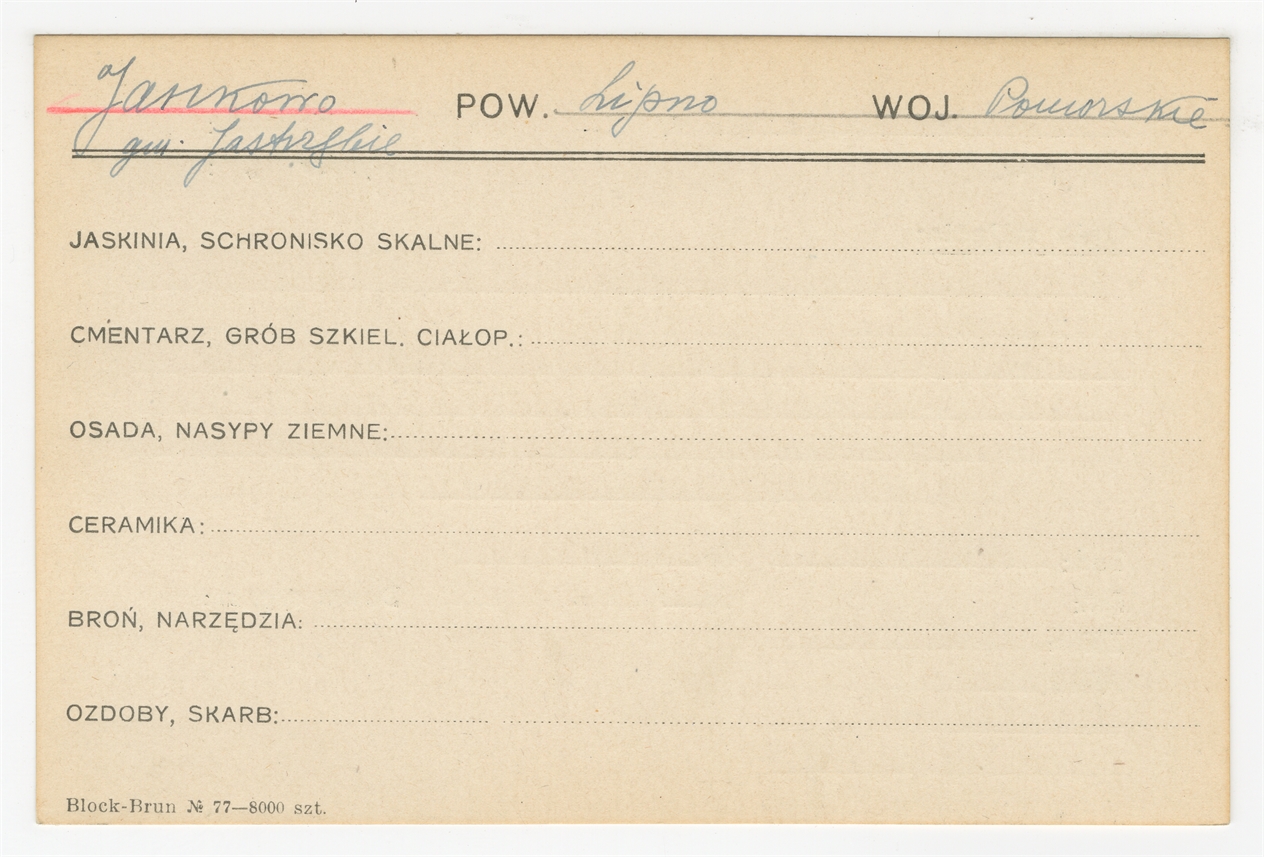 Jankowo POW. Lipno WOJ. Pomorskie
gm. Jastrzębie
JASKINIA, SCHRONISKO SKALNE:
CMENTARZ, GRÓB SZKIEL. CIAŁOP.:
OSADA, NASYPY ZIEMNE:
CERAMIKA:
BROŃ, NARZĘDZIA:
OZDOBY, SKARB:
Block-Brun № 77—8000 szt.